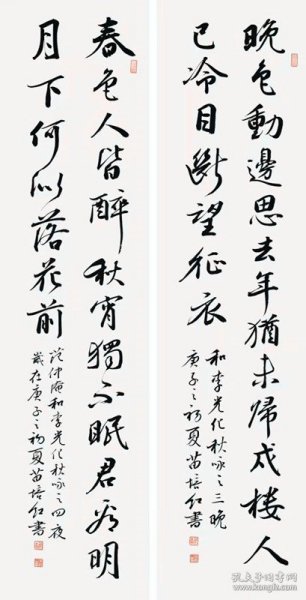 晚色動邊思去年猶未歸戍樓人
已冷目斷望征衣
和李光化秋詠之三晚
庚子之初夏苗培红書
春色人皆醉秋宵獨不眠君看明
月下何似落花前
范仲淹和李光化秋詠之四夜
歲在庚子之初夏苗培红書
孔夫子旧书网